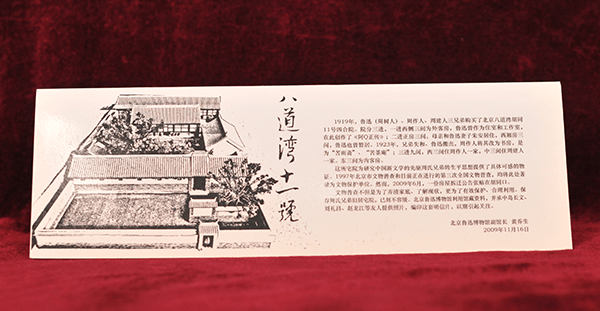 八道湾十一号
1919年，鲁迅（周树人）、周作人、周建人三兄弟购买了北京八道湾胡同
11号四合院。院分三进，一进西侧三间为外客房，鲁迅曾作为住室和工作室，
在此创作了《阿Q正传》；二进正房三间，母亲和鲁迅妻子朱安居住，西厢房三
间，鲁迅也曾暂居。1923年，兄弟失和，鲁迅搬出，周作人将其改为书房，是
为“苦雨斋”、“苦茶庵”；三进九间，西三间住周作人一家，中三间住周建人
一家，东三间为内客房。
这所宅院为研究中国新文学的先驱周氏兄弟的生平思想提供了具体可感的物
证。1997年北京市文物普查和目前正在进行的第三次全国文物普查，均将此处著
录为文物保护单位。然而，2009年6月，一份房屋拆迁公告张贴在胡同口。
文物普查不但是为了弄清家底、了解现状，更为了有效保护、合理利用。保
存周氏兄弟旧居宅院，已刻不容缓。北京鲁迅博物馆利用馆藏资料，并承中岛长文、
刘礼昌、赵龙江等友人提供照片，编印这套明信片，以期引起关注。
北京鲁迅博物馆副馆长 黄乔生
2009年11月16日